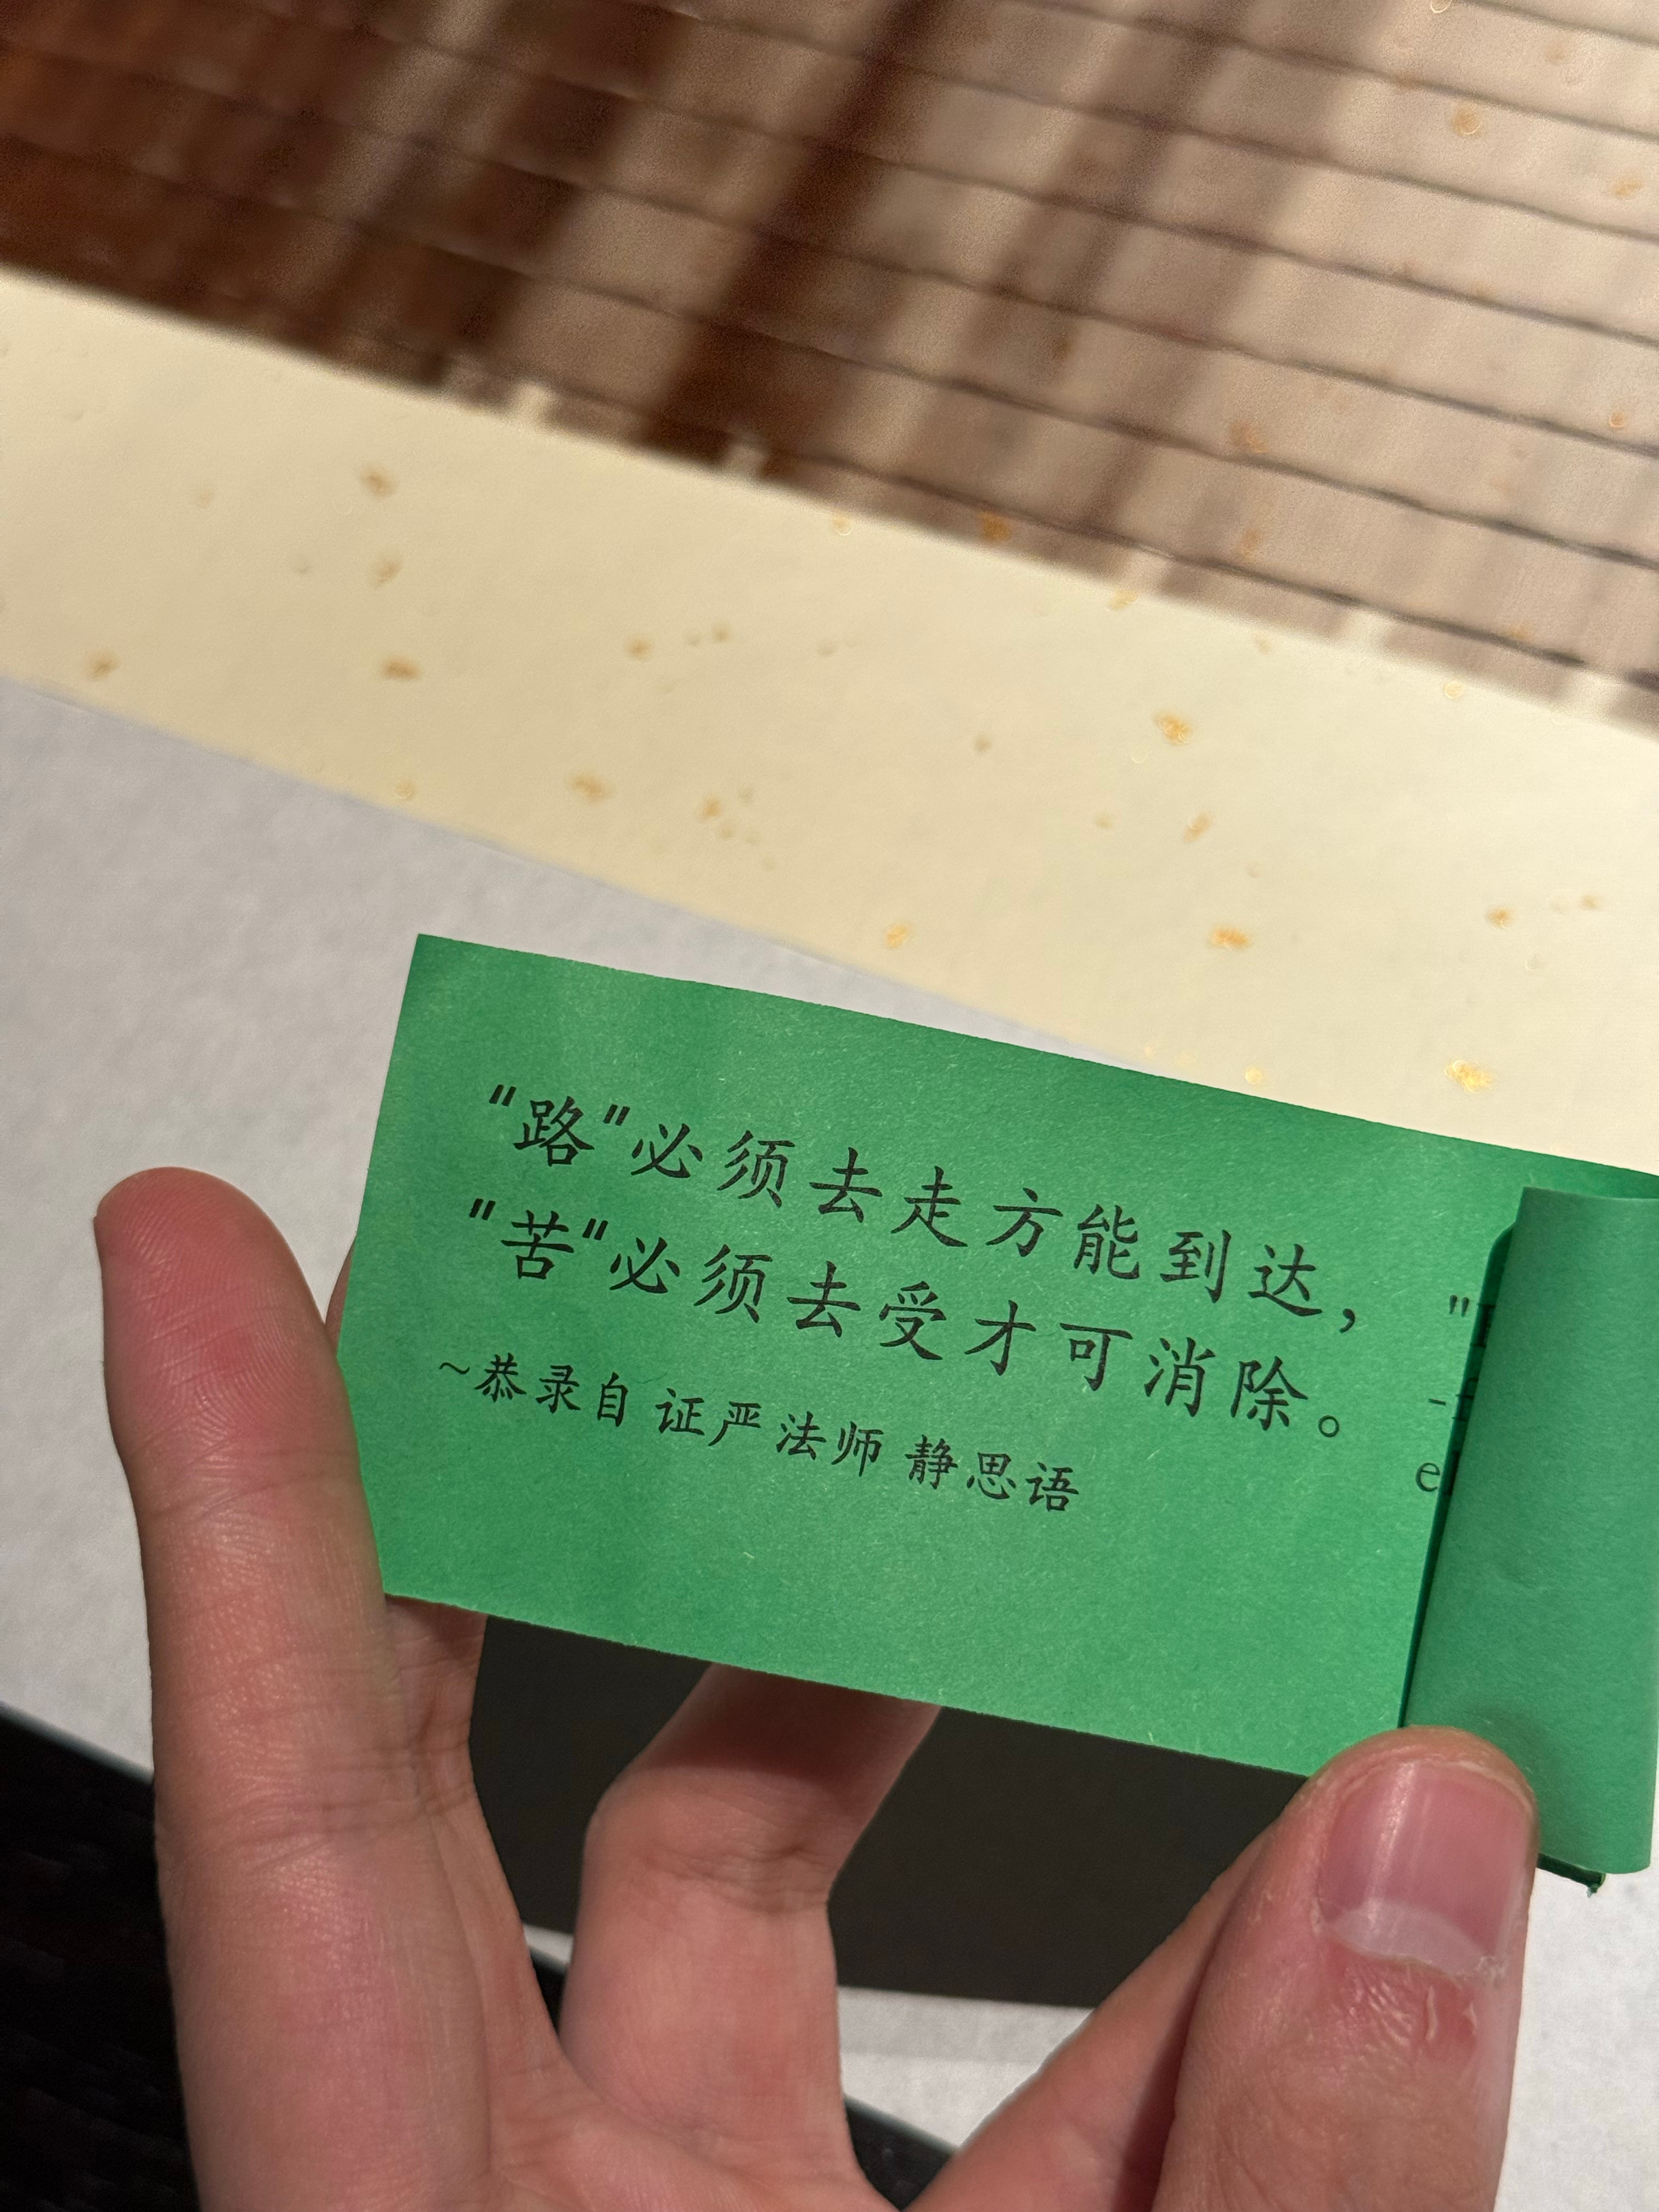 "路"必须去走方能到达，
"苦"必须去受才可消除。
~恭录自 证严法师 静思语